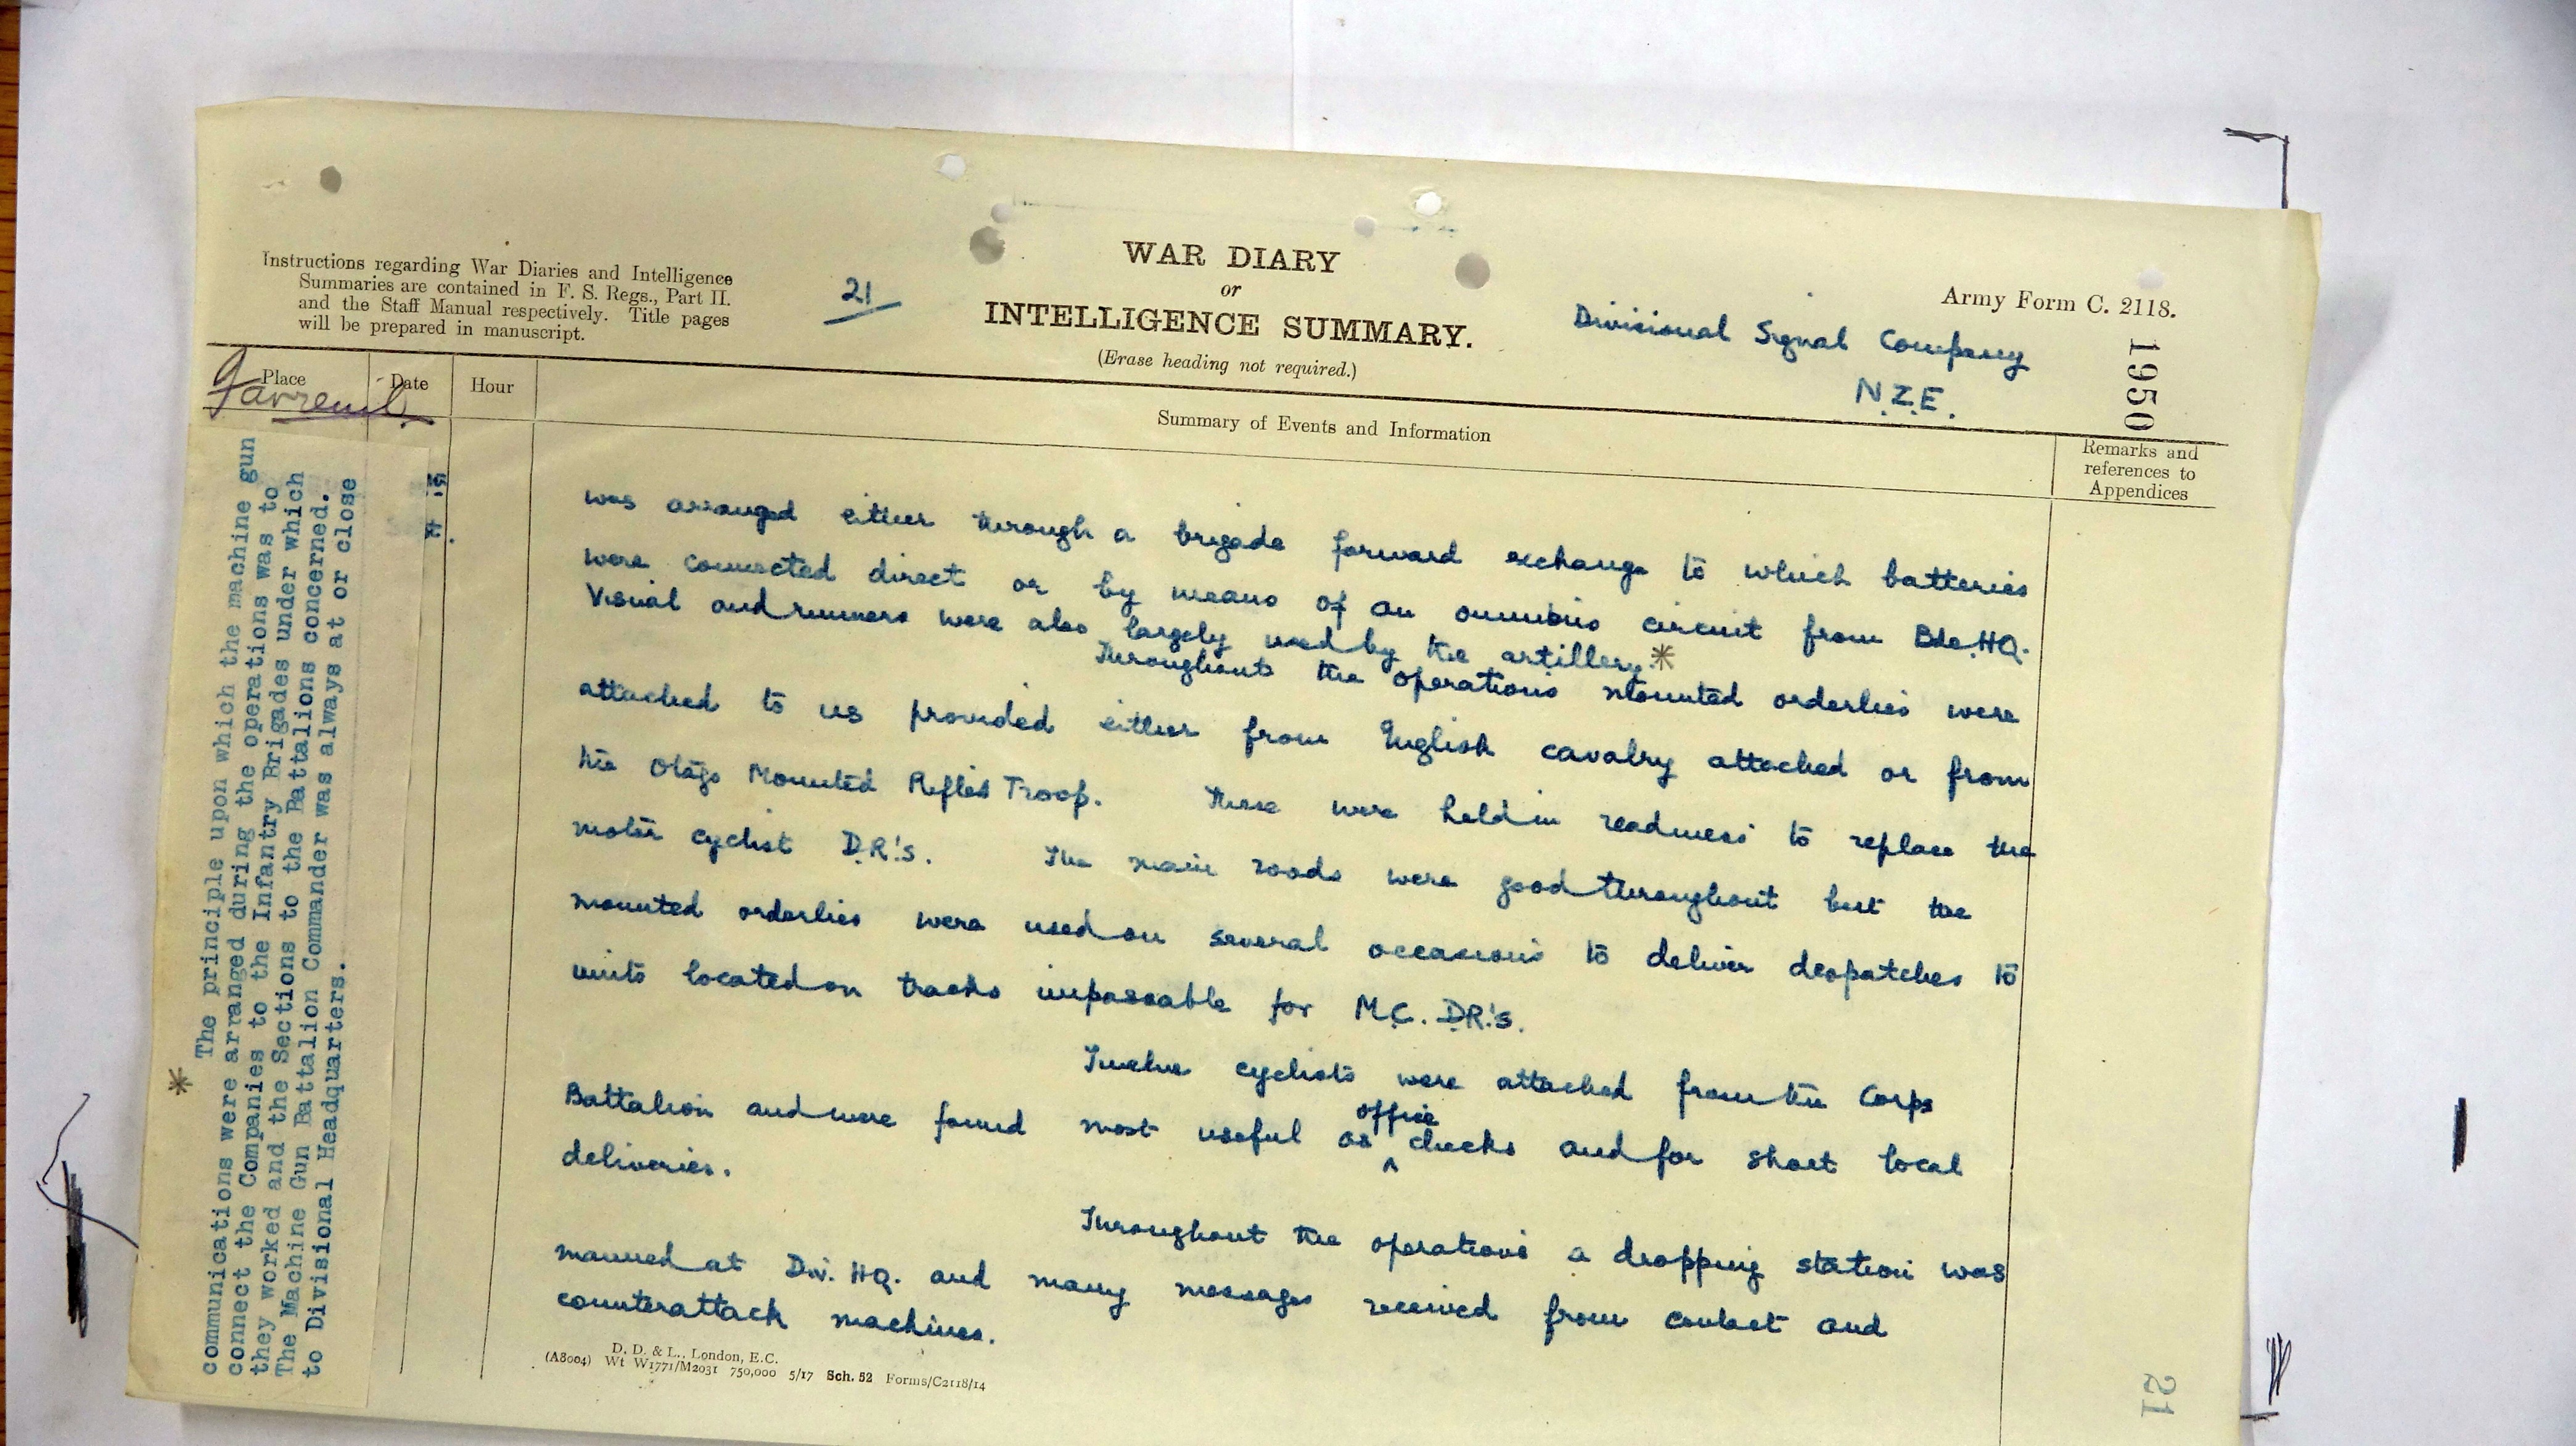 Instructions regarding War Diaries and Intelligence
Summaries are contained in F. S. Regs., Part II.
and the Staff Manual respectively. Title pages
will be prepared in manuscript.
21
WAR DIARY
or
INTELLIGENCE SUMMARY.
(Erase heading not required.)
Army Form C. 2118.
Divisional Signal Company
N.Z.E.
1950
Place
Date
Hour
Summary of Events and Information
Remarks and
references to
Appendices
was arranged either through a brigade forward exchange to which batteries
were connected direct or by means of an omnibus circuit from Bde.HQ.
Visual and runners were also largely used by the artillery.*
Throughout the operations mounted orderlies were
attached to us provided either from English cavalry attached or from
the Otago Mounted Rifles Troop. These were held in readiness to replace the
motor cyclist D.R.'s. The main roads were good throughout but the
mounted orderlies were used on several occasions to deliver despatches to
units located on tracks impassable for M.C. D.R.'s.
Twelve cyclists were attached from the Corps
Battalion and were found most useful as office checks and for short local
deliveries.
Throughout the operations a dropping station was
manned at Div. HQ. and many messages received from contact and
counterattack machines.
* The principle upon which the machine gun
communications were arranged during the operations was to
connect the Companies to the Infantry Brigades under which
they worked and the Sections to the Battalions concerned.
The Machine Gun Battalion Commander was always at or close
to Divisional Headquarters.
D. D. & L., London, E.C.
(A8004) Wt W1771/M2031 750,000 5/17 Sch. 52 Forms/C2118/14
21